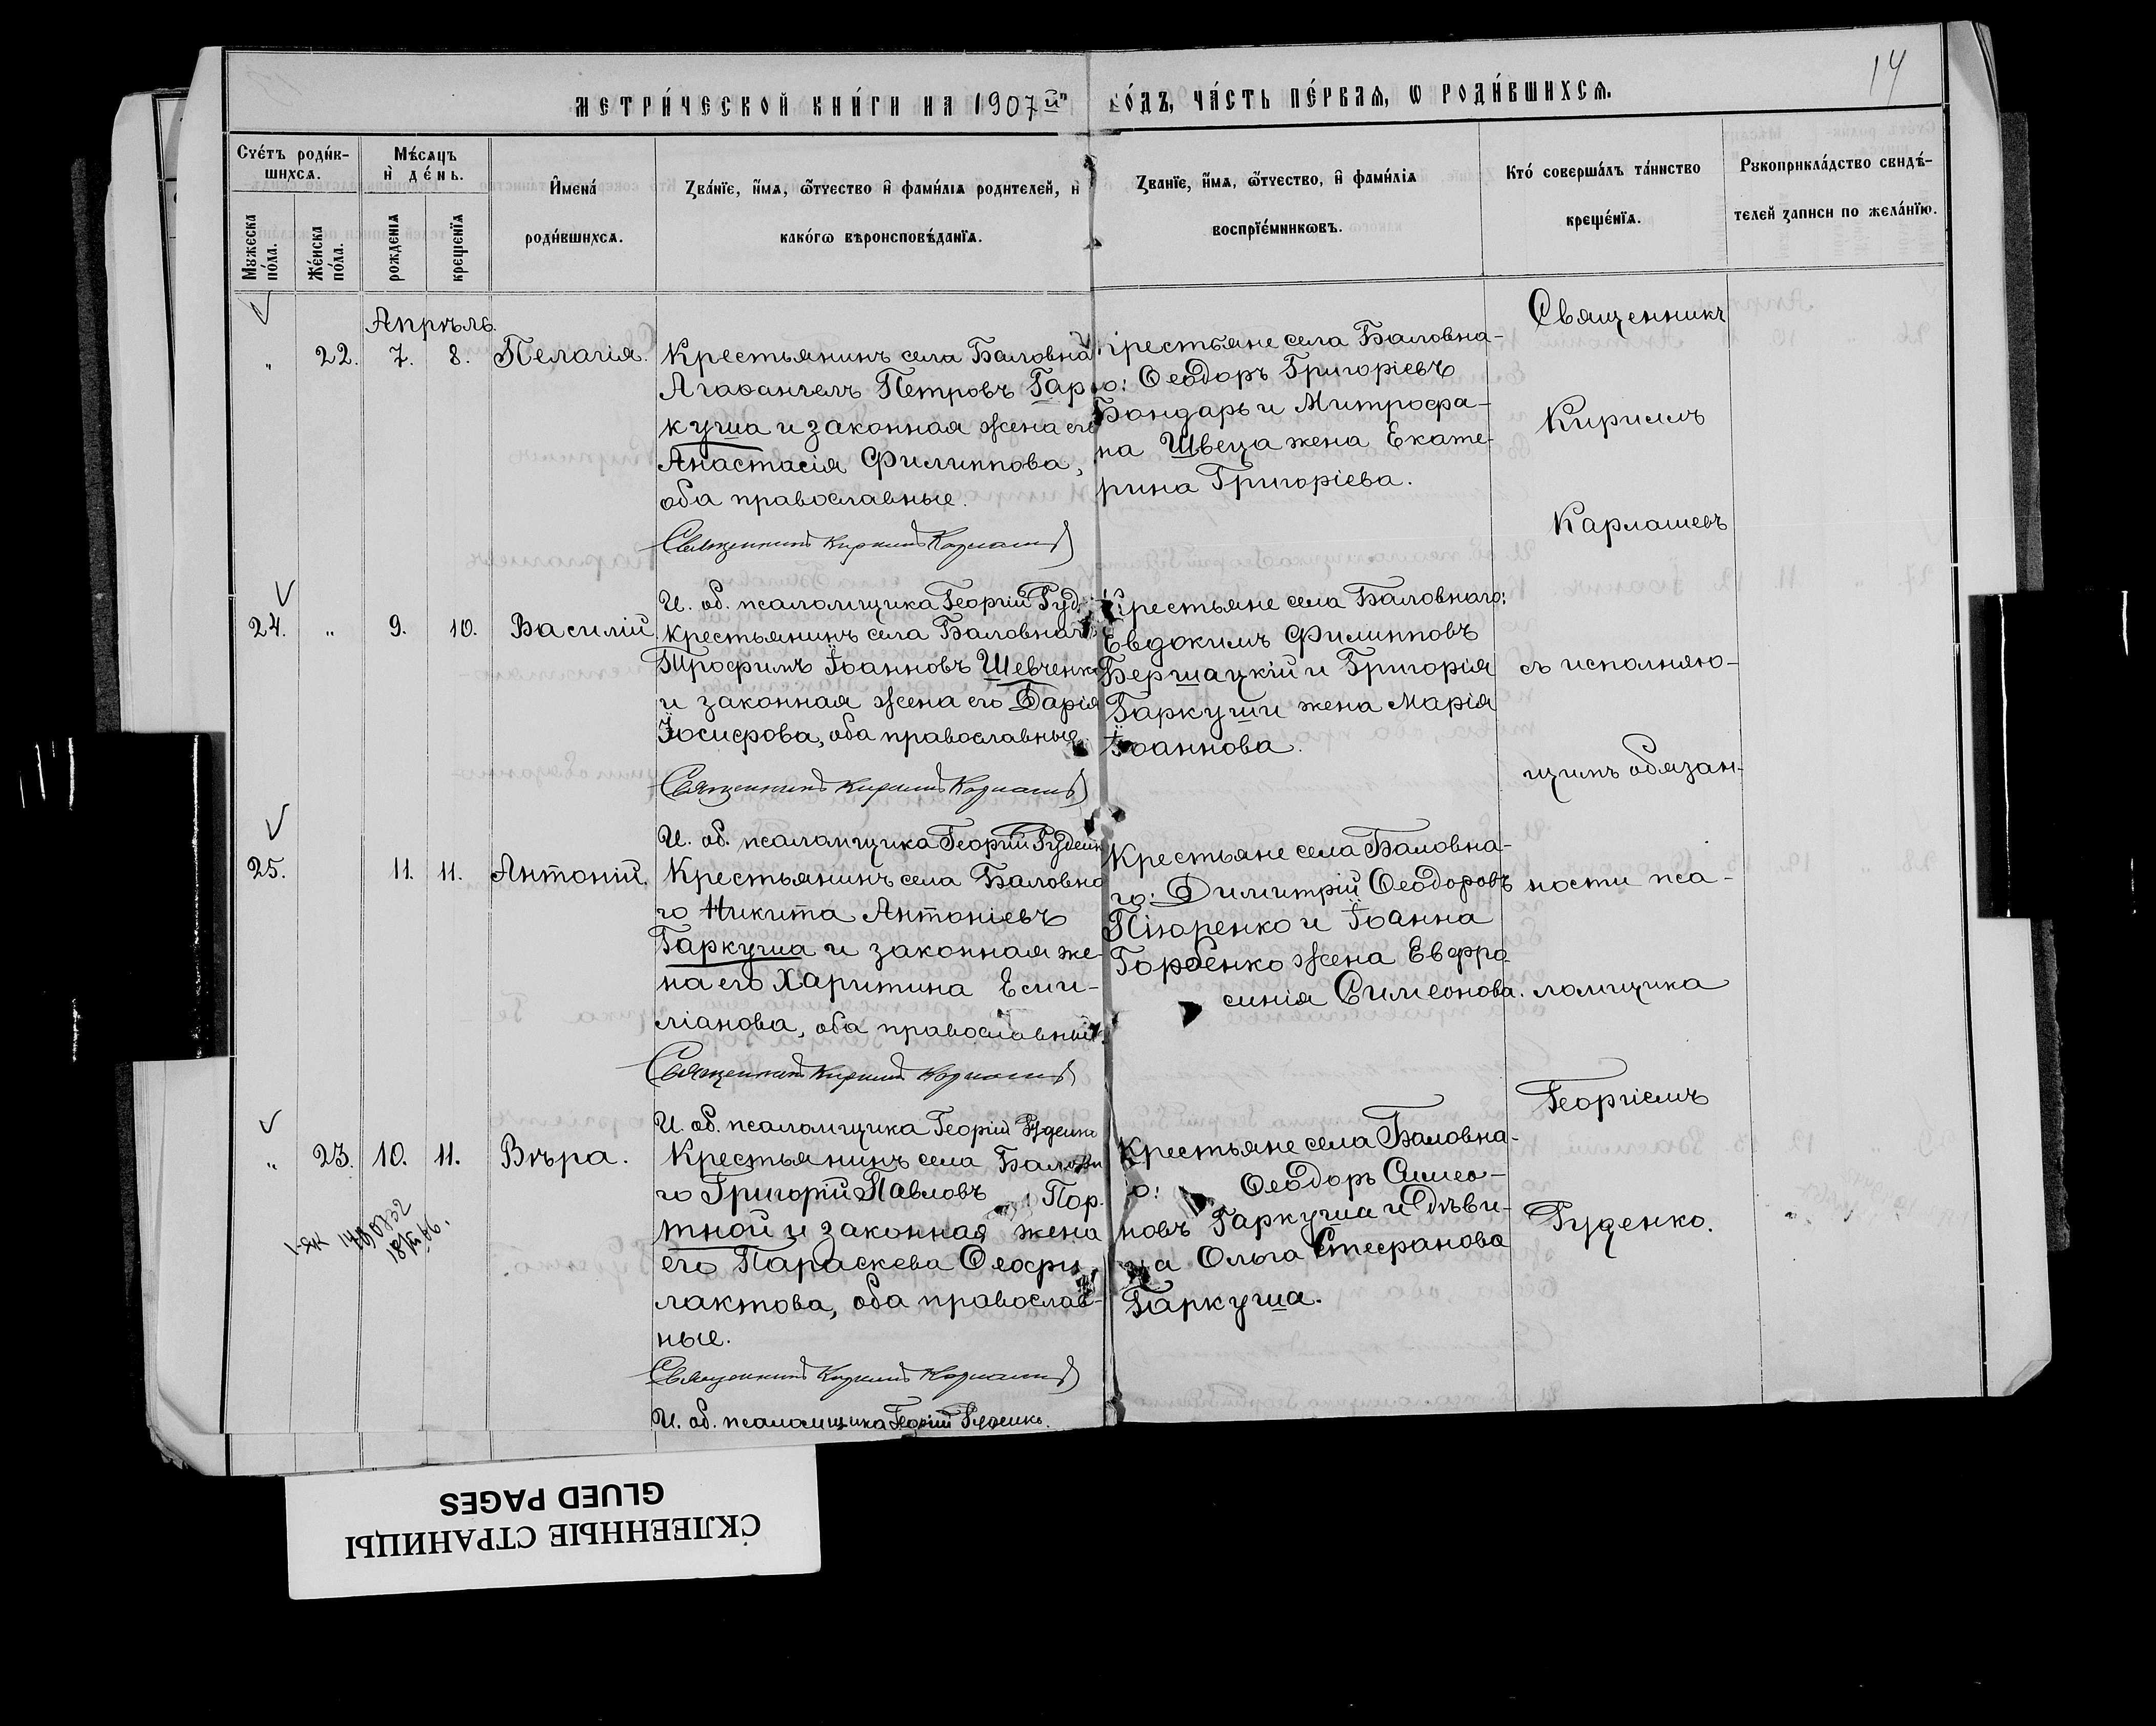 14
МЕТРИ́ЧЕСКОЙ КНИ́ГИ НА 1907 й ГО́ДЪ, ЧА́СТЬ ПЕ́РВАѦ, Ѡ РОДИ́ВШИХСѦ.
Сче́тъ роди́вшихсѧ.
Мꙋжеска по́ла.
Же́нска по́ла.
Мѣ́сѧцъ и҆ де́нь.
рожденїѧ
крещенїѧ
И҆мена́ роди́вшихсѧ.
Зва́нїе, и҆́мѧ, ѻ҆́тчество и҆ фамилїѧ родителей, и҆
како́гѡ вѣроисповѣ́данїѧ.
Званїе, и҆́мѧ, ѻ҆́тчество, и҆ фами́лїѧ
воспрїе́мникѡвъ.
Кто́ соверша́лъ та́инство
креще́нїѧ.
Рꙋкоприкла́дство свидѣ́-
телей записи по жела́нїю.
Апрѣль.
„ 22. 7. 8. Пелагія.
Крестьянинъ села Баловна
Агаѳангелъ Петровъ Гар
куша и законная жена его
Анастасія Филиппова,
оба православные.
Священникъ Кириллъ Карлашевъ
И. об. псаломщика Георгій Гуд
Крестьяне села Баловна-
го: Ѳеодоръ Григоріевъ
Бондарь и Митрофа-
на Швеца жена Екате-
рина Григоріева.
24. „ 9. 10. Василій.
Крестьянинъ села Баловнаго
Трофимъ Іоанновъ Шевченко
и законная жена его Дарія
Іосифова, оба православные.
Священникъ Кириллъ Карлашевъ
И. об. псаломщика Георгій Руденк
Крестьяне села Баловнаго:
Евдокимъ Филипповъ
Бершацкій и Григорія
Гаркуши жена Марія
Іоаннова.
25. 11. 11. Антоній.
Крестьянинъ села Баловна
го Никита Антоніевъ
Гаркуша и законная же-
на его Харитина Еми-
ліанова, оба православные.
Священникъ Кириллъ Карлашевъ
И. об. псаломщика Георгій Гуденко
Крестьяне села Баловна-
го: Димитрій Ѳеодоровъ
Піюренко и Іоанна
Горбенко жена Евфро-
синія Симеонова.
„ 23. 10. 11. Вѣра.
Крестьянинъ села Баловн
го Григорій Павловъ Пор-
тной и законная жена
его Параскева Ѳеофи
лактова, оба православ-
ные.
Священникъ Кириллъ Карлашевъ
И. об. псаломщика Георгій Гуденко.
Крестьяне села Баловна-
го: Ѳеодоръ Симео-
новъ Гаркуша и дѣви-
ца Ольга Стефанова
Гаркуша.
Священникъ
Кириллъ
Карлашевъ
съ исполняю-
щимъ обязан-
ности пса-
ломщика
Георгіемъ
Гуденко.
СКЛЕЕННЫЕ СТРАНИЦЫ
GLUED PAGES